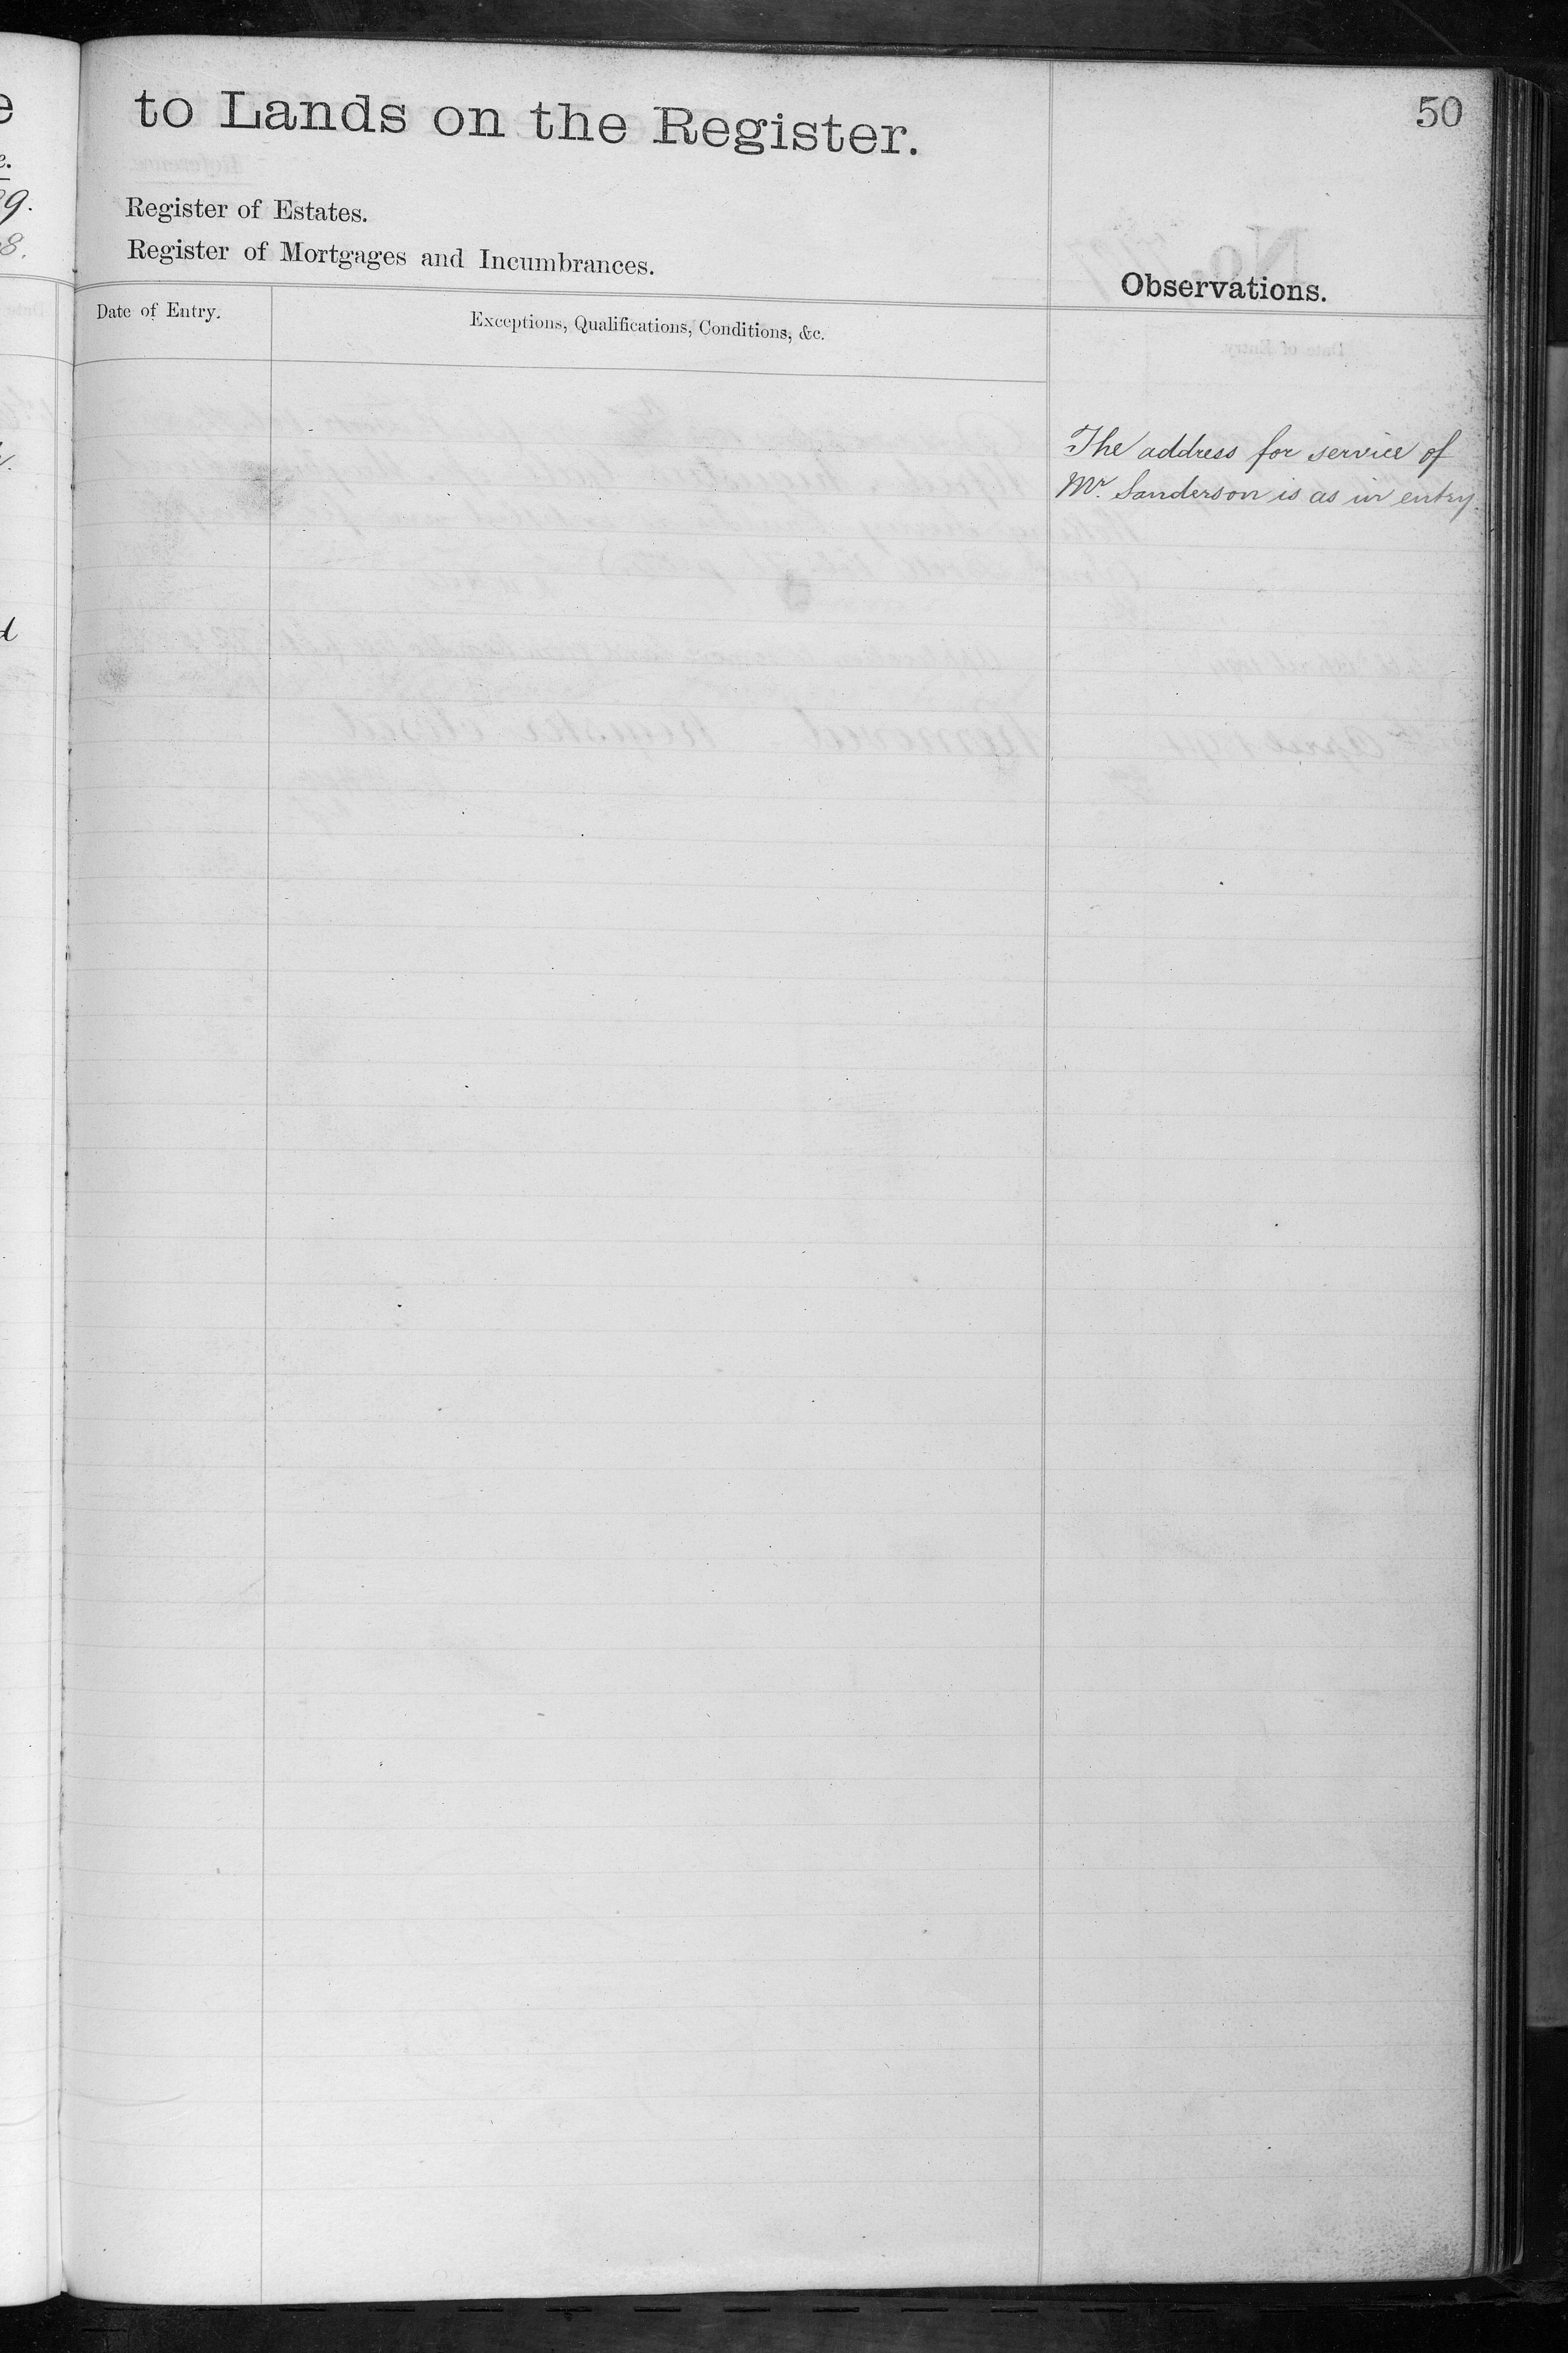 to Lands on the Register.
50
Register of Estates.
Register of Mortgages and Incumbrances.
Observations.
Date of Entry.
Exceptions, Qualifications, Conditions, &c.
The address for service of
Mr. Sanderson is as in entry